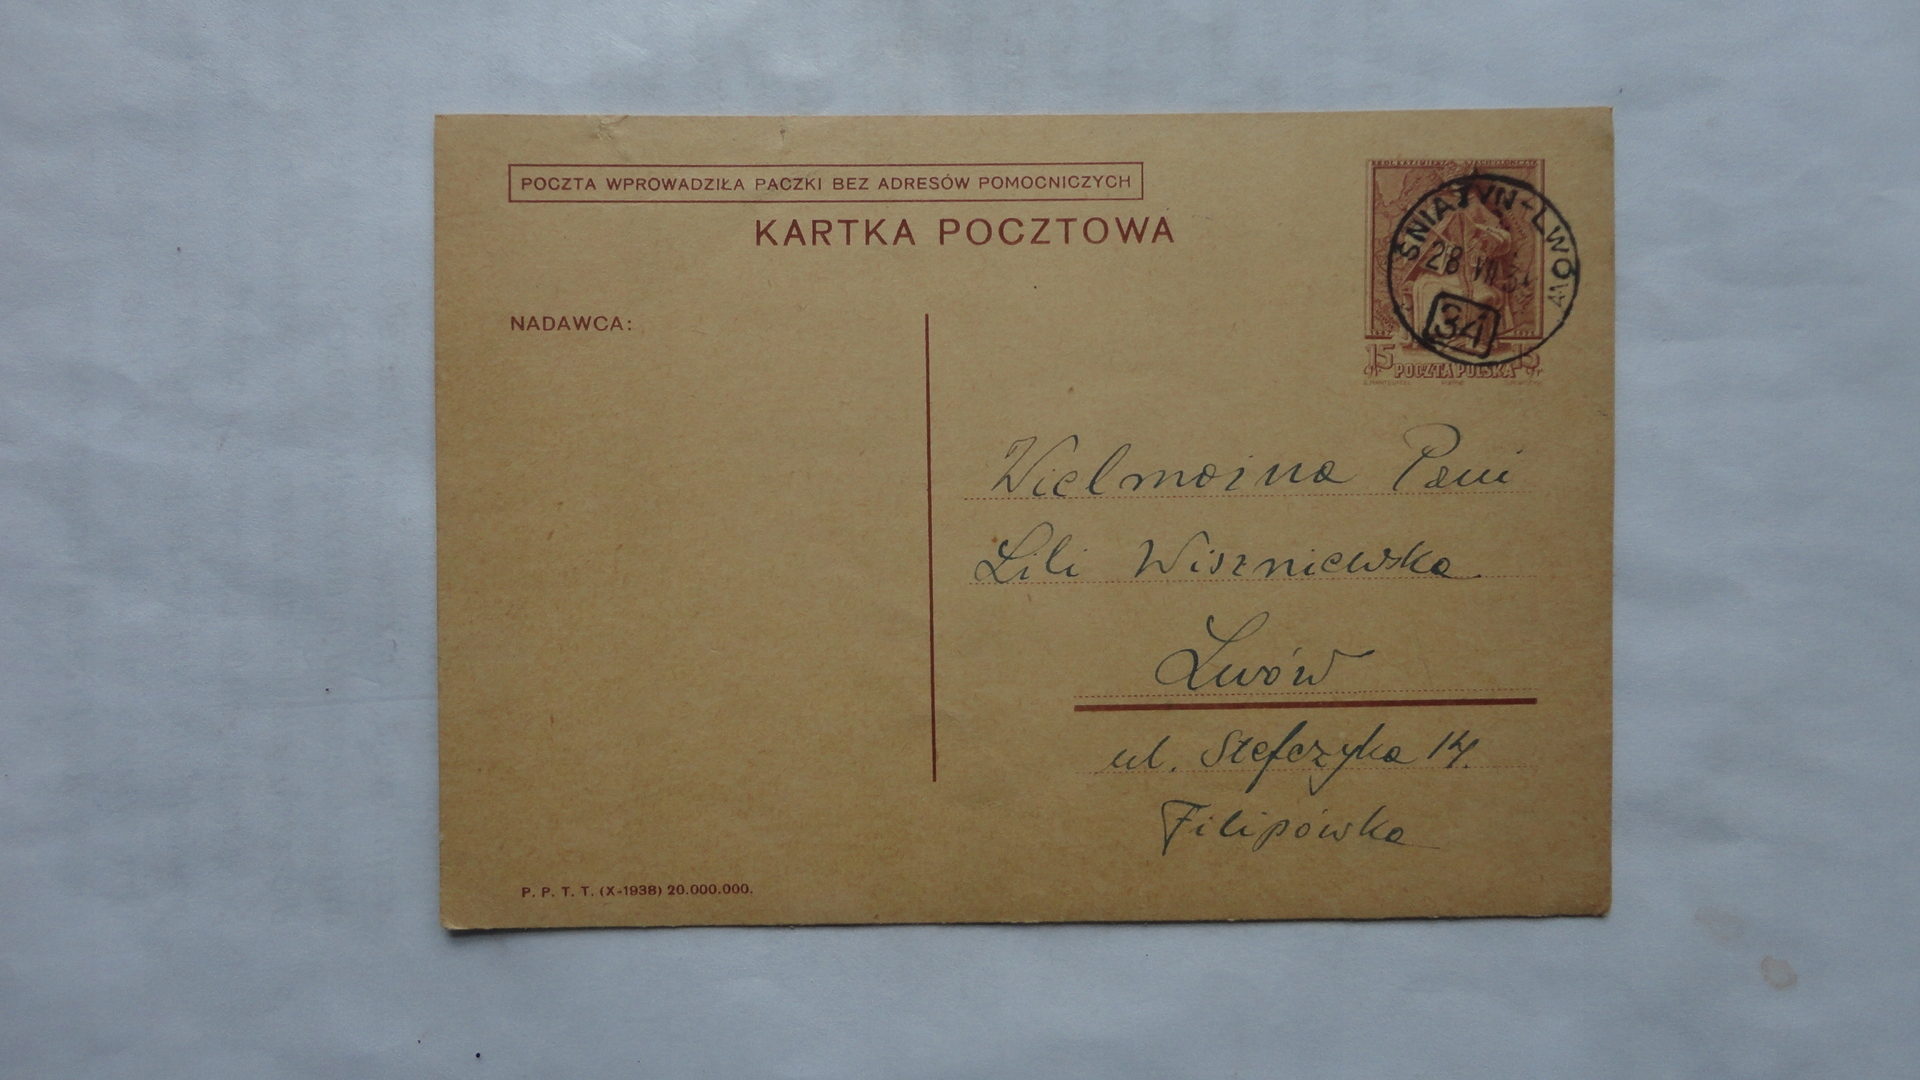 POCZTA WPROWADZIŁA PACZKI BEZ ADRESÓW POMOCNICZYCH
KARTKA POCZTOWA
ŚNIATYN-LWÓW
28 VII 3
34
15 gr POCZTA POLSKA 15 gr
NADAWCA:
Wielmożna Pani
Lili Wiszniewska
Lwów
ul. Stefczyka 14.
Filipówka
P. P. T. T. (X-1938) 20.000.000.